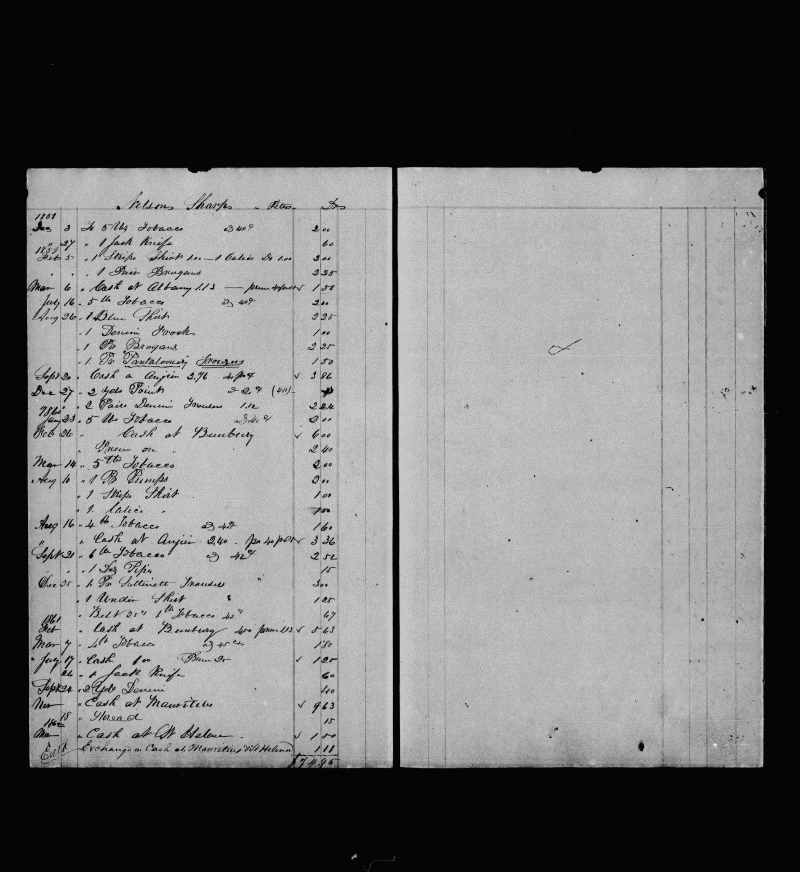 Nelson Sharp Drs
1858
Dec 3 To 5 lbs Tobacco @ 40¢ 2 00
" 27 " 1 Jack Knife 60
1859
Feb 5 " 1 Stripe Shirt 1.00 — 1 Calico Do 1.00 2 00
" " " 1 Pair Brogans 2 25
Mar 6 " Cash at Albany 1.13 — 1 50
July 16 " 5 lb Tobacco @ 40¢ 2 00
Aug 26 " 1 Blue Shirt 2 25
" 1 Denim Frock 1 00
" 1 Pr Brogans 2 25
" 1 Pr Pantaloons Trousers 1 50
Sept 20 " Cash a Angier 2.76 3 86
Dec 27 " 2 yds (40)
" 2 Pairs Denim Trousers 1.12 2 24
1860
Jan 23 " 5 lbs Tobacco @ 40¢ 2 00
Feb 26 " Cash at Bunbury 6 00
" Prem on " 2 40
Mar 14 " 5 lb Tobacco 2 00
Aug 10 " 1 Pr Pumps 2 00
" 1 Stripe Shirt 1 00
" 1 Calico " 1 00
Aug 16 " 4 lb Tobacco @ 40¢ 1 60
" " Cash at Angier 2.40 - 3 36
Sept 21 " 6 lb Tobacco @ 42¢ 2 52
" " 1 Doz Pipes 15
Dec 25 " 1 Pr Sattinett Trousers " 3 00
" 1 Under Shirt " 1 25
" Belt 25" 1 lb Tobacco 42" 67
1861
Feb " Cash at Bunbury 4.50 prem 1.13 5 63
Mar 7 " 4 lb Tobacco @ 45 cts 1 80
" July 17 " Cash 1 00 Prem 25 1 25
" 26 " 1 Jack Knife 60
Sept 24 " 2 Yds Denim 40
Nov " Cash at Mauritius 9 63
" 18 " Thread 15
1862
Mar " Cash at St Helena 1 50
Exchange on Cash at Mauritius & St Helena 1 11
$74.95